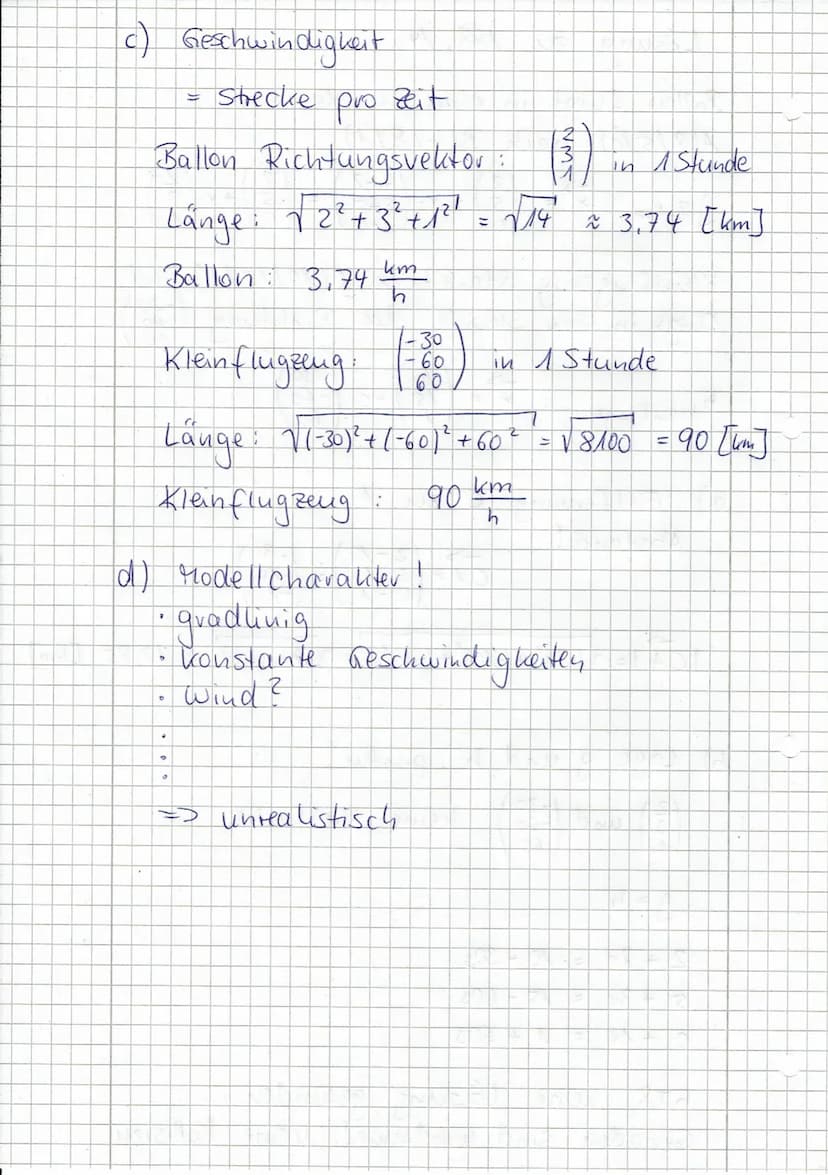 c) Geschwindigkeit
= Strecke pro Zeit
Ballon Richtungsvektor: (2 3 1) in 1 Stunde
Länge: √(2² + 3² + 1²) = √14 ≈ 3,74 [km]
Ballon: 3,74 km/h
Kleinflugzeug: (-30 -60 60) in 1 Stunde
Länge: √((-30)² + (-60)² + 60²) = √8100 = 90 [km]
Kleinflugzeug: 90 km/h
d) Modellcharakter!
· gradlinig
· konstante Geschwindigkeiten
· Wind?
⋮
=> unrealistisch